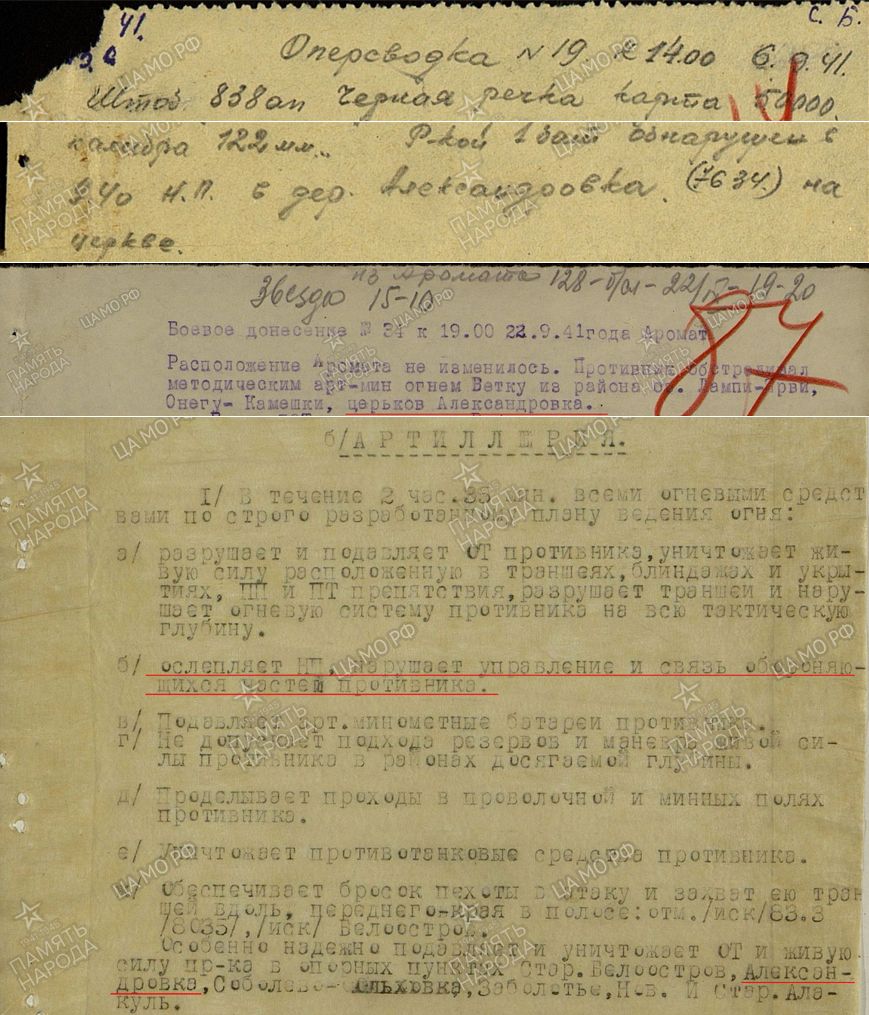 41.
С. Б.
Оперсводка N 19 к 14.00 6. 9. 41.
Штаб 838 ап Черная речка карта 50000.
калибра 122 мм. Р-кой 1 бат обнаружен в
9.40 Н.П. в дер. Александровка. (7634.) на
церкве.
из Аромата 128-
Звезда 15-10 19-20
Боевое донесение № 34 к 19.00 22.9.41года Аромат
87
Расположение Аромата не изменилось. Противник обстреливал
методическим арт-мин огнем Ветку из района оз. Лампи-Ярви,
Онегу- Камешки, церьков Александровка.
б/ А Р Т И Л Л Е Р И Я.
I/ В течение 2 час.35 мин. всеми огневыми средст
вами по строго разработанному плану ведения огня:
а/ разрушает и подавляет ОТ противника,уничтожает жи-
вую силу расположенную в траншеях,блиндажах и укры-
тиях, ПП и ПТ препятствия,разрушает траншеи и нару-
шает огневую систему противника на всю тактическую
глубину.
б/ ослепляет НП, нарушает управление и связь обороняю-
щихся частей противника.
в/ Подавляет арт.минометные батареи противника.
г/ Не допускает подхода резервов и маневр живой си-
лы противника в районах досягаемой глубины.
д/ Проделывает проходы в проволочной и минных полях
противника.
е/ Уничтожает противотанковые средства противника.
ж/ Обеспечивает бросок пехоты в атаку и захват ею тран
шей вдоль, переднего-края в полосе:отм./иск/83.3
/8035/,/иск/ Белоостров.
Особенно надежно подавляет и уничтожает ОТ и живую
силу пр-ка в опорных пунктах Стар.Белоостров,Алексан-
дровка,Соболево- Ольховка,Заболотье,Нов. И Стар.Ала-
куль.
ПАМЯТЬ НАРОДА
ЦАМО.РФ